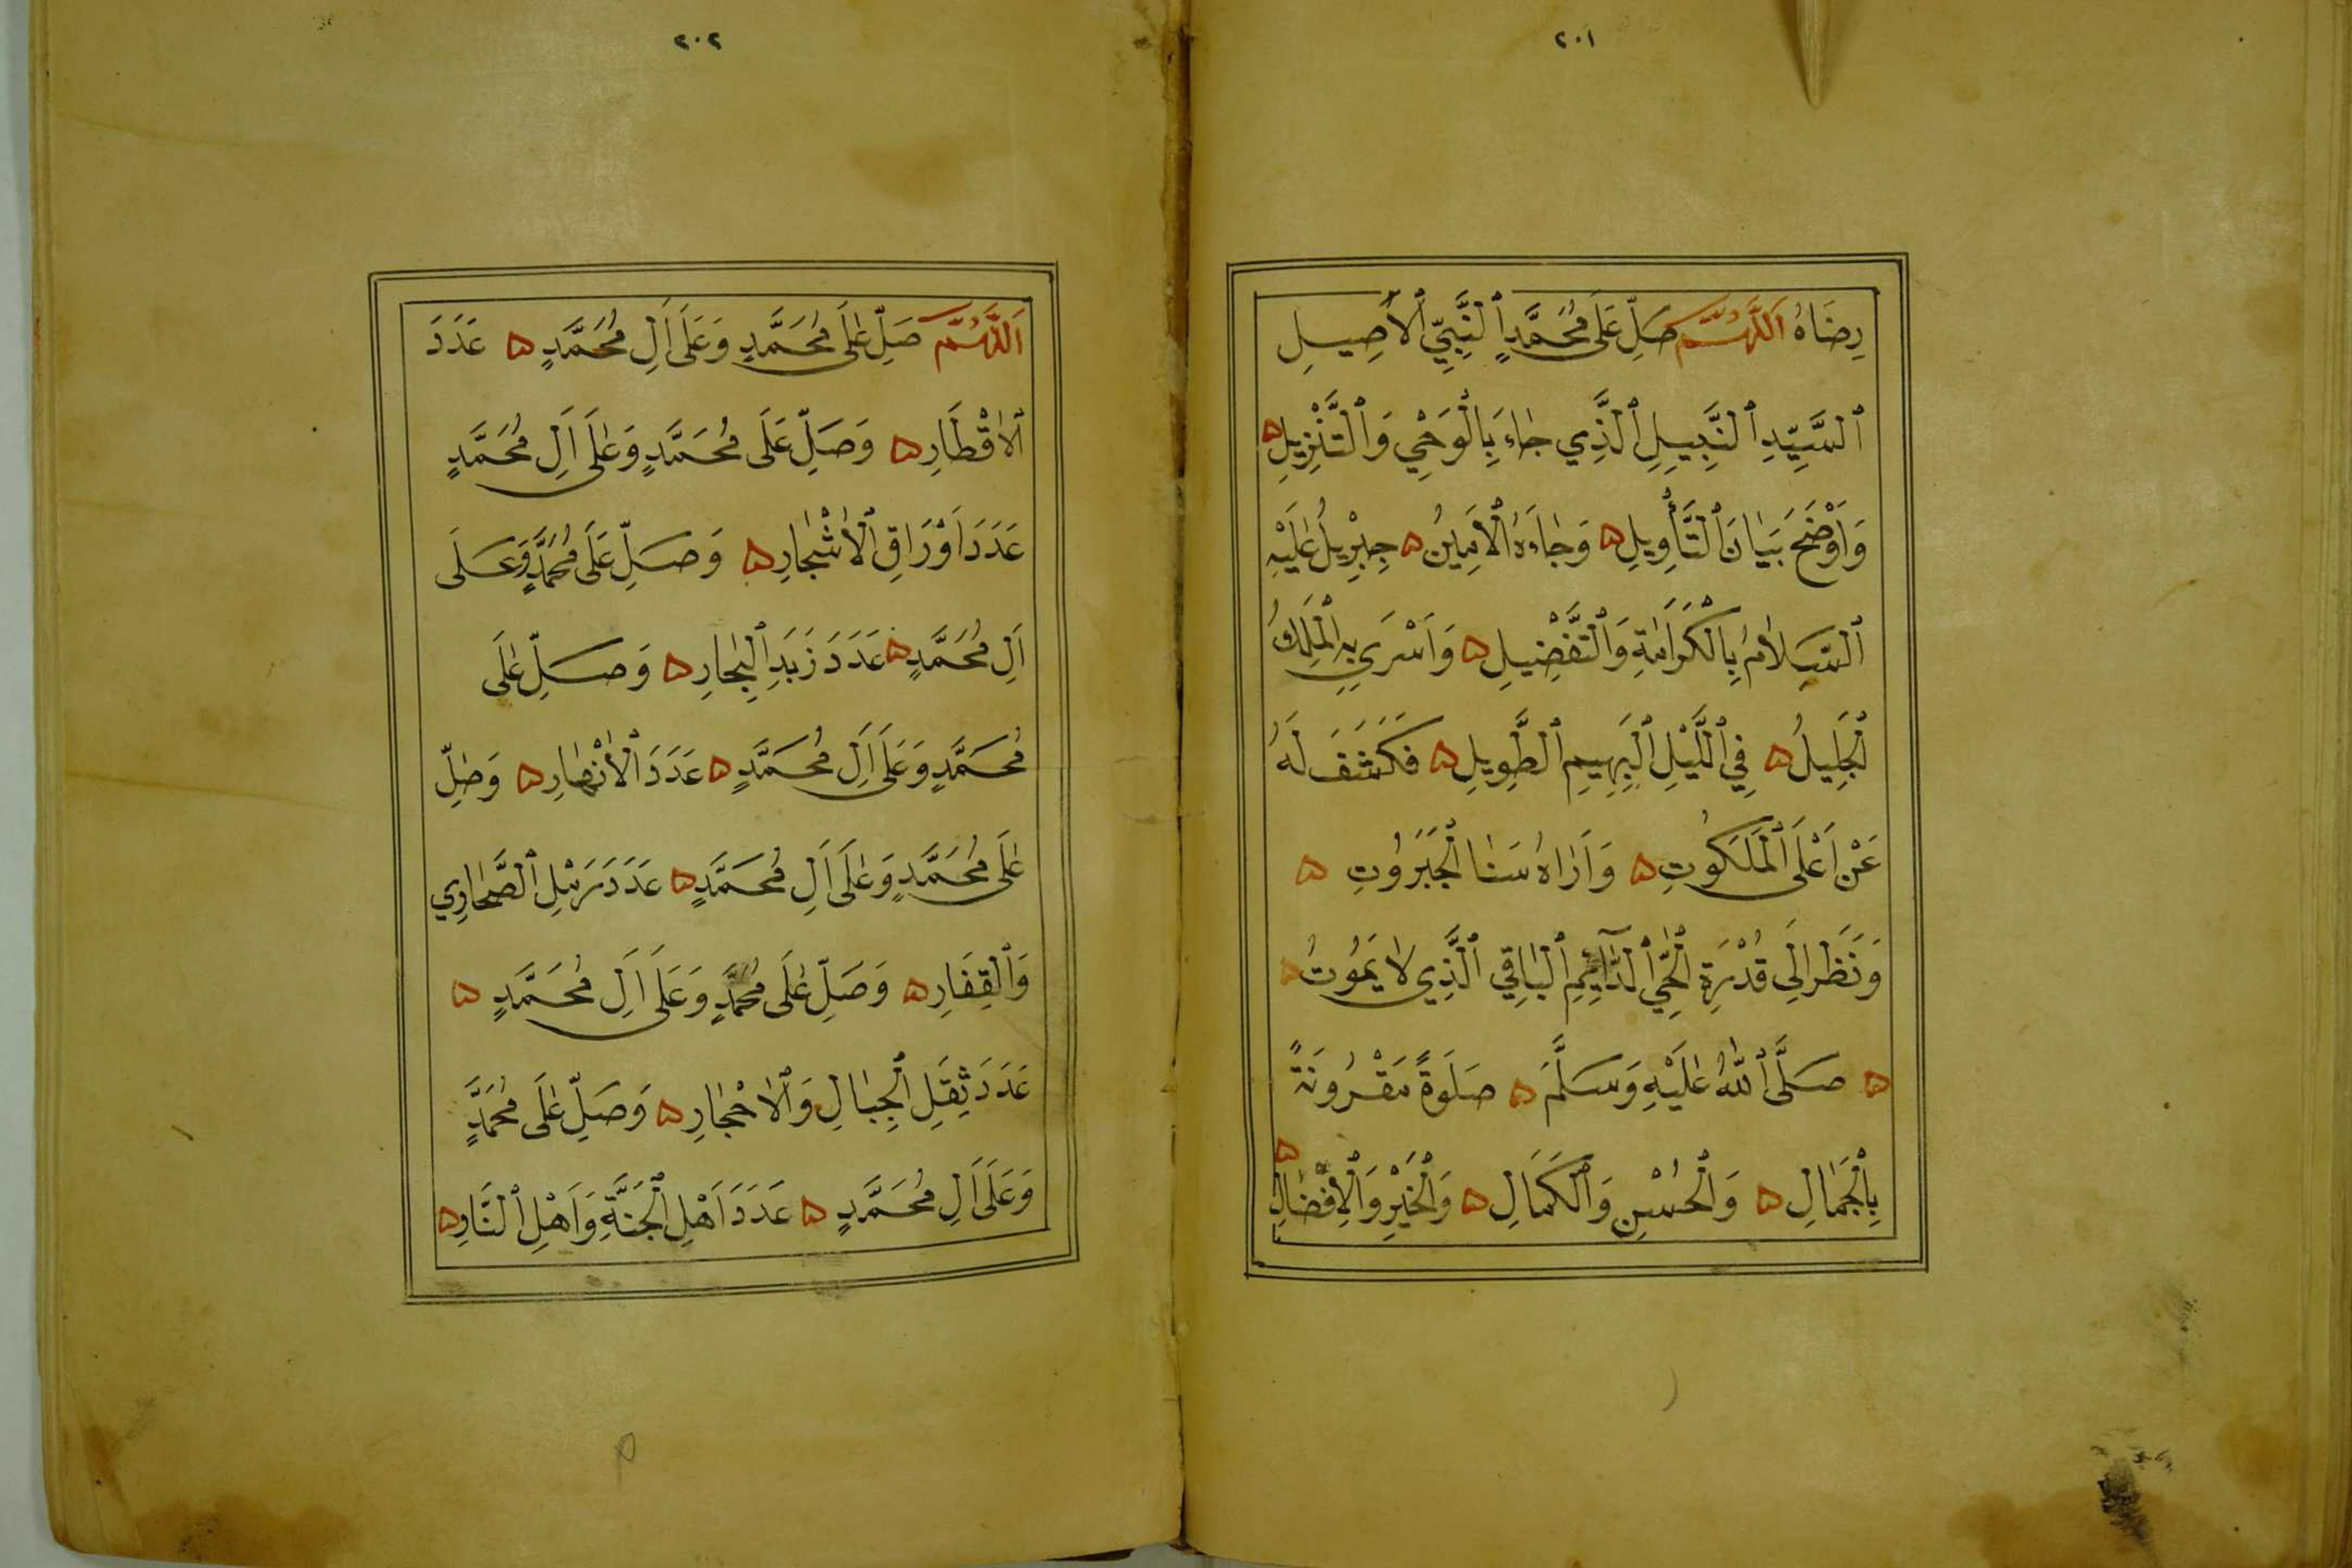 ٢٠١
رِضَاهُ اَللّٰهُمَّ صَلِّ عَلَى مُحَمَّدٍ ٱلنَّبِيِّ ٱلْأَصِيلِ
ٱلسَّيِّدِ ٱلنَّبِيلِ ٱلَّذِي جَاءَ بِالْوَحْيِ وَٱلتَّنْزِيلِ ۵
وَاَوْضَحَ بَيَانَ ٱلتَّأْوِيلِ ۵ وَجَاءَهُ ٱلْاَمِينُ ۵ جِبْرِيلُ عَلَيْهِ
ٱلسَّلَامُ بِالْكَرَامَةِ وَٱلتَّفْضِيلِ ۵ وَاَسْرَي بِهِ ٱلْمَلِكُ
ٱلْجَلِيلُ ۵ فِي ٱللَّيْلِ ٱلْبَهِيمِ ٱلطَّوِيلِ ۵ فَكَشَفَ لَهُ
عَنْ اَعْلَى ٱلْمَلَكُوتِ ۵ وَاَرَاهُ سَنَا ٱلْجَبَرُوتِ ۵
وَنَظَرَ اِلَى قُدْرَةِ ٱلْحَيِّ ٱلدَّآئِمِ ٱلْبَاقِي ٱلَّذِي لَا يَمُوتُ ۵
۵ صَلَّى ٱللّٰهُ عَلَيْهِ وَسَلَّمَ ۵ صَلَوةً مَقْرُونَةً
بِالْجَمَالِ ۵ وَالْحُسْنِ وَٱلْكَمَالِ ۵ وَالْخَيْرِ وَٱلْاِفْضَالِ ۵
٢٠٢
اَللّٰهُمَّ صَلِّ عَلَى مُحَمَّدٍ وَعَلَى اَلِ مُحَمَّدٍ ۵ عَدَدَ
ٱلْاَقْطَارِ ۵ وَصَلِّ عَلَى مُحَمَّدٍ وَعَلَى اَلِ مُحَمَّدٍ
عَدَدَ اَوْرَاقِ ٱلْاَشْجَارِ ۵ وَصَلِّ عَلَى مُحَمَّدٍ وَعَلَى
اَلِ مُحَمَّدٍ ۵ عَدَدَ زَبَدِ ٱلْبِحَارِ ۵ وَصَلِّ عَلَى
مُحَمَّدٍ وَعَلَى اَلِ مُحَمَّدٍ ۵ عَدَدَ ٱلْاَنْهَارِ ۵ وَصَلِّ
عَلَى مُحَمَّدٍ وَعَلَى اَلِ مُحَمَّدٍ ۵ عَدَدَ رَمْلِ ٱلصَّحَارِي
وَٱلْقِفَارِ ۵ وَصَلِّ عَلَى مُحَمَّدٍ وَعَلَى اَلِ مُحَمَّدٍ ۵
عَدَدَ ثِقَلِ ٱلْجِبَالِ وَٱلْاَحْجَارِ ۵ وَصَلِّ عَلَى مُحَمَّدٍ
وَعَلَى اَلِ مُحَمَّدٍ ۵ عَدَدَ اَهْلِ ٱلْجَنَّةِ وَاَهْلِ ٱلنَّارِ ۵